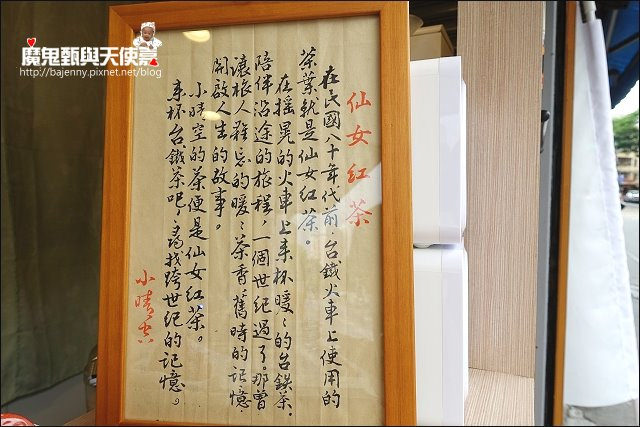 魔鬼甄與天使嘉
http://bajenny.pixnet.net/blog
仙女红茶
在民國八十年代前，台鐵火車上使用的
茶葉就是仙女红茶。
在摇晃的火車上来杯暖暖的台鉄茶。
陪伴沿途的旅程，一個世紀過了。那曾
讓旅人難忘的暖暖茶香，舊時的记憶，
開啟人生的故事。
小晴空的茶便是仙女红茶。
来杯台鐵茶吧，尋找跨世纪的记憶。
小晴空